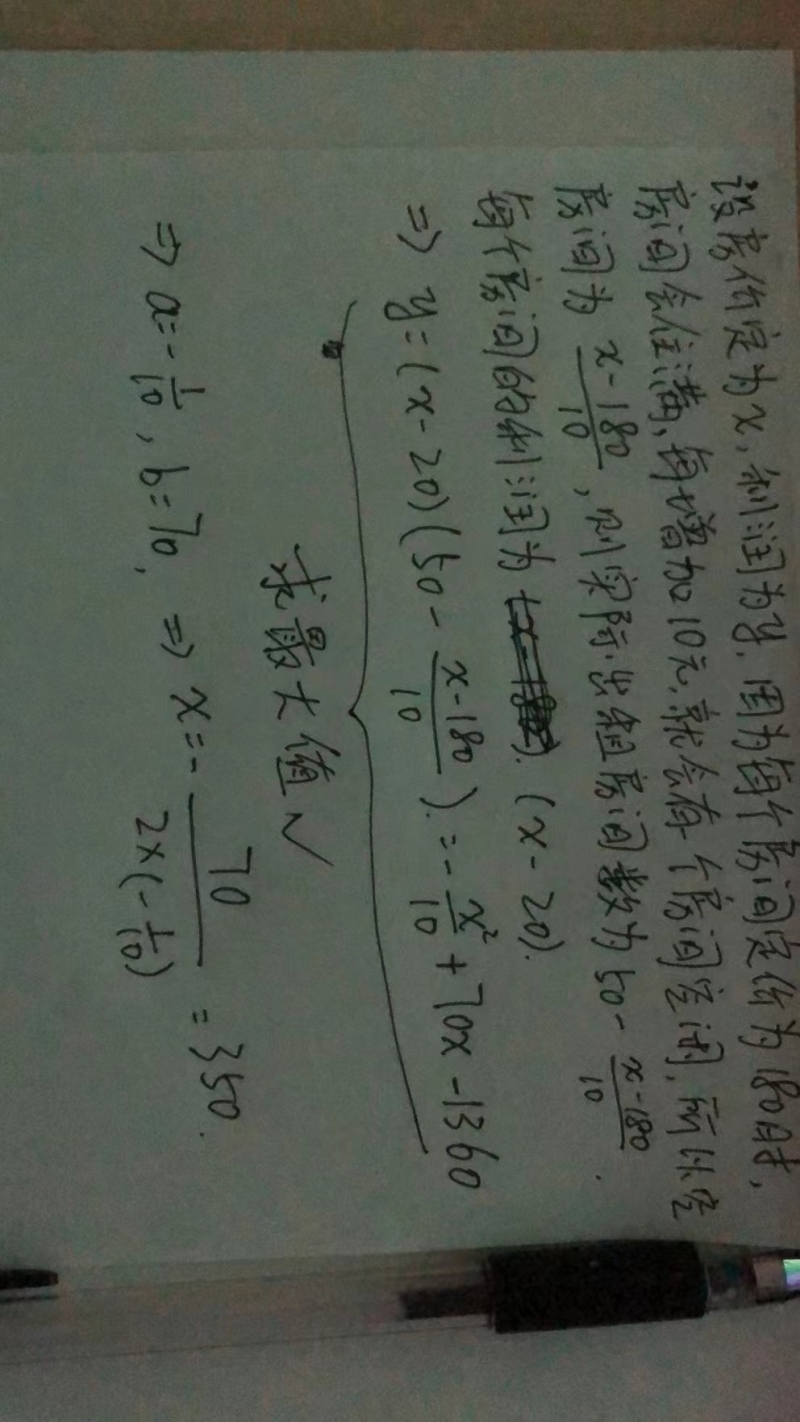 设房价定为x,利润为y,因为每个房间定价为180时,
房间会住满,每增加10元,就会有个房间空闲,所以空
房间为 (x-180)/10 ,则实际出租房间数为 50 - (x-180)/10 .
每个房间的利润为 (x-20).
⇒ y=(x-20)(50 - (x-180)/10). = -x²/10 + 70x -1360
求最大值√
⇒ a=-1/10, b=70, ⇒ x=- 70/(2×(-1/10)) = 350.